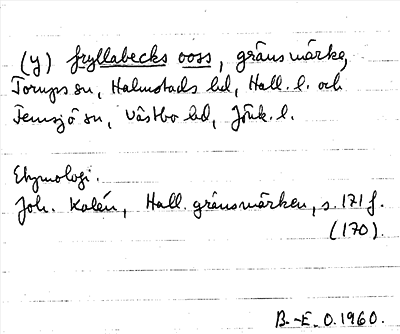 (y) fryllabecks ooss, gränsmärke,
Torups sn, Halmstads hd, Hall. l. och
Femsjö sn, Västbo hd, Jönk. l.
Etymologi.
Joh. Kalén, Hall. gränsmärken, s. 171 f.
(170).
B.-E. O. 1960.